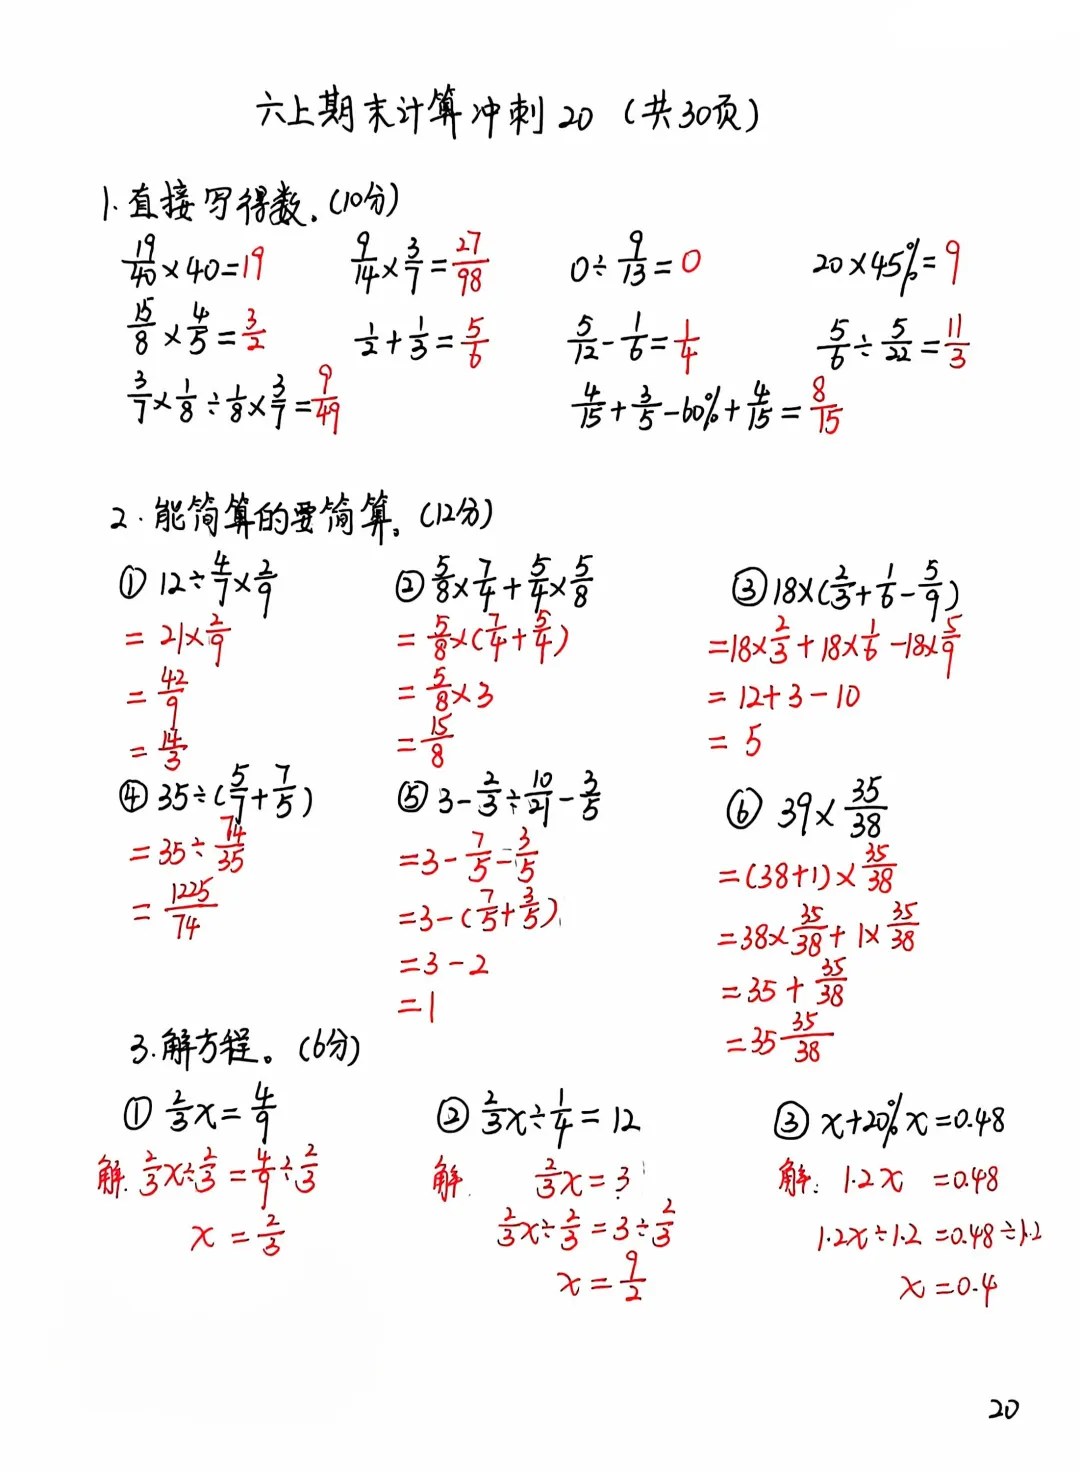 六上期末计算冲刺20（共30页）
1.直接写得数.(10分)
19/40×40=19 9/14×3/7=27/98 0÷9/13=0 20×45%=9
15/8×4/5=3/2 1/2+1/3=5/6 5/12-1/6=1/4 5/6÷5/22=11/3
3/7×1/8÷1/8×3/7=9/49 4/15+3/5-60%+4/15=8/15
2.能简算的要简算。(12分)
① 12÷4/7×2/9
=21×2/9
=42/9
=14/3
② 5/8×7/4+5/4×5/8
=5/8×(7/4+5/4)
=5/8×3
=15/8
③ 18×(2/3+1/6-5/9)
=18×2/3+18×1/6-18×5/9
=12+3-10
=5
④ 35÷(5/7+7/5)
=35÷74/35
=1225/74
⑤ 3-2/3÷10/21-3/5
=3-7/5-3/5
=3-(7/5+3/5)
=3-2
=1
⑥ 39×35/38
=(38+1)×35/38
=38×35/38+1×35/38
=35+35/38
=35 35/38
3.解方程。(6分)
① 2/3x=4/9
解. 2/3x÷2/3=4/9÷2/3
x=2/3
② 2/3x÷1/4=12
解. 2/3x=3
2/3x÷2/3=3÷2/3
x=9/2
③ x+20%x=0.48
解: 1.2x=0.48
1.2x÷1.2=0.48÷1.2
x=0.4
20